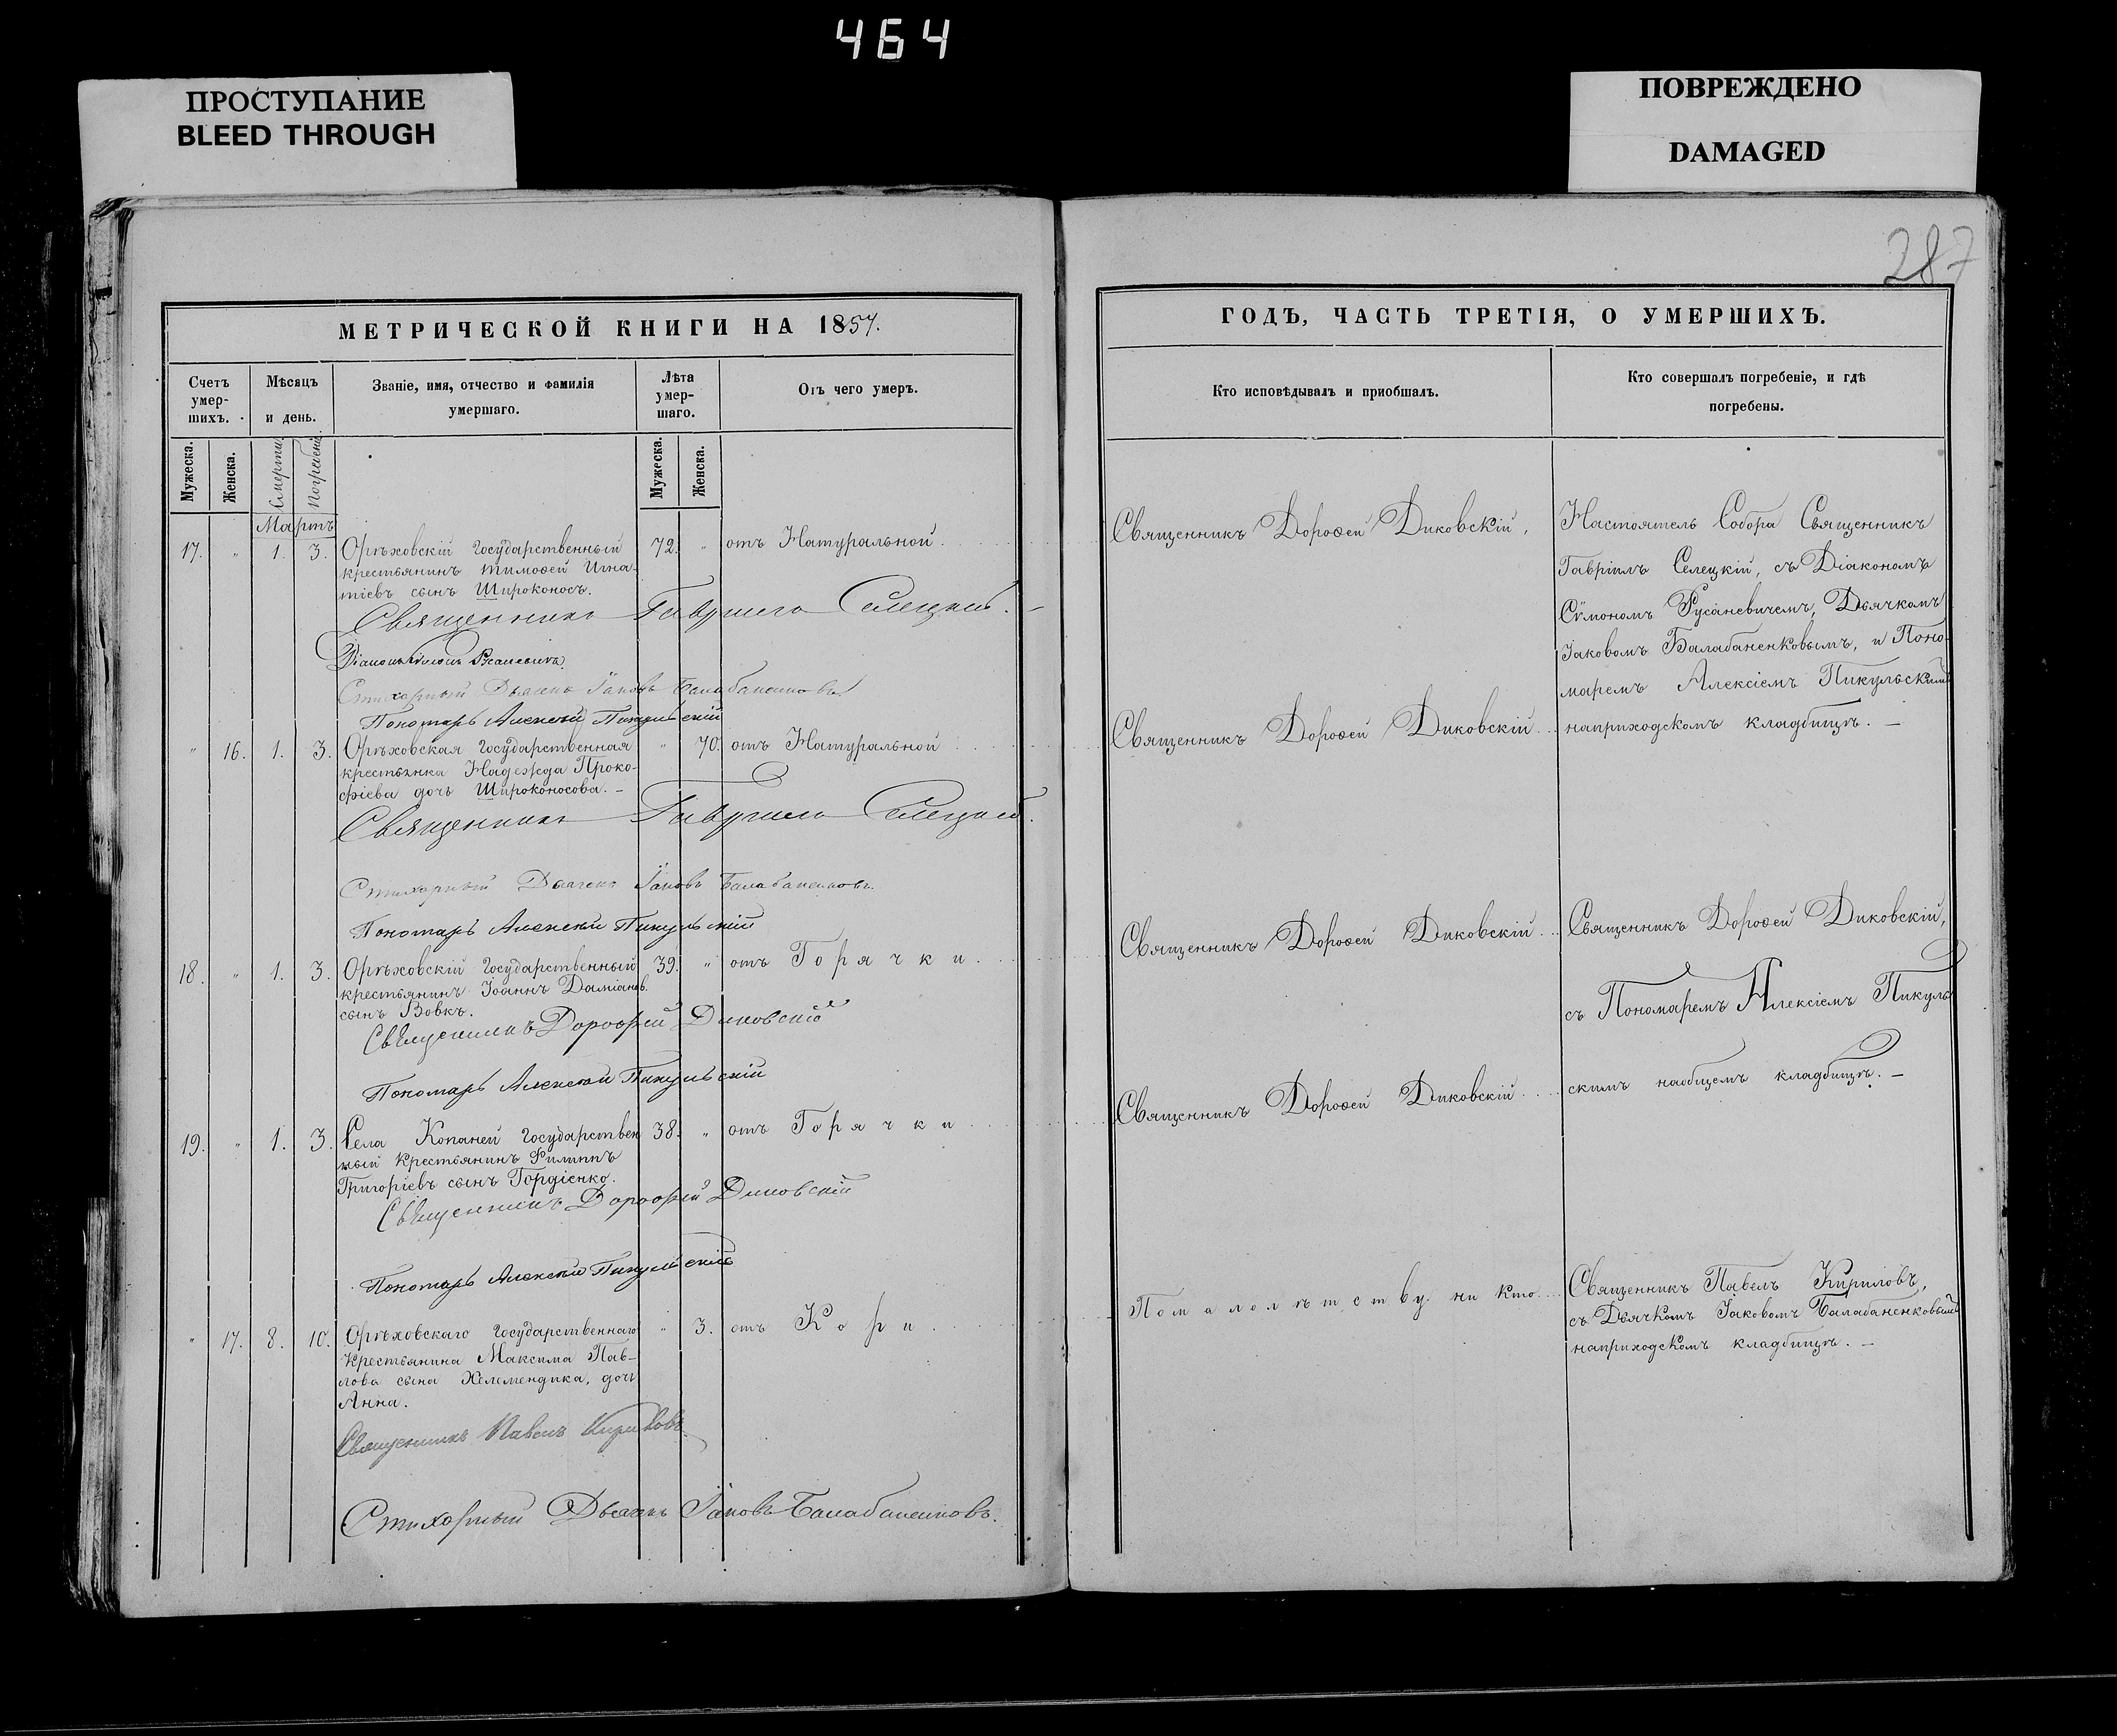 464
ПРОСТУПАНИЕ
BLEED THROUGH
ПОВРЕЖДЕНО
DAMAGED
287
МЕТРИЧЕСКОЙ КНИГИ НА 1857.
Счетъ умер-шихъ.
Мѣсяцъ и день.
Званіе, имя, отчество и фамилія умершаго.
Лѣта умер-шаго.
Отъ чего умеръ.
Мужеска.
Женска.
Смерти.
Погребенія.
Мужеска.
Женска.
Мартъ
17. " 1. 3. Орѣховскій государственный 72. " отъ Натуральной.
крестьянинъ Тимоѳей Игна-
тіевъ сынъ Широконосъ.
Священникъ Гавріилъ Селецкій.
Діаконъ Сѵмонъ Русаневичъ
Стихарный Дьячекъ Іаковъ Балабаненковъ
Пономарь Алексѣй Пикульскій
" 16. 1. 3. Орѣховская государственная " 70. отъ Натуральной
крестьянка Надежда Проко-
фіева дочь Широконосова. –
Священникъ Гавріилъ Селецкій.
Стихарный Дьячекъ Іаковъ Балабаненковъ.
Пономарь Алексѣй Пикульскій
18. " 1. 3. Орѣховскій государственный 39. " отъ Горячки.
крестьянинъ Іоаннъ Даміанов.
сынъ Вовкъ.
Священникъ Дорофей Диковскій
Пономарь Алексѣй Пикульскій
19. " 1. 3. Села Копаней государствен 38. " отъ Горячки
ный крестьянинъ Филиппъ
Григоріевъ сынъ Гордіенко.
Священникъ Дорофей Диковскій
Пономарь Алексѣй Пикульскій
" 17. 8. 10. Орѣховскаго государственнаго " 3. отъ Кори.
крестьянина Максима Пав-
лова сына Хелемендика, дочь
Анна.
Священникъ Павелъ Кириловъ
Стихарный Дьячекъ Іаковъ Балабаненковъ.
ГОДЪ, ЧАСТЬ ТРЕТІЯ, О УМЕРШИХЪ.
Кто исповѣдывалъ и приобщалъ.
Кто совершалъ погребеніе, и гдѣ
погребены.
Священникъ Дороѳей Диковскій,
Священникъ Дороѳей Диковскій
Священникъ Дороѳей Диковскій
Священникъ Дороѳей Диковскій
По малолѣтству ни кто
Настоятель Собора Священникъ
Гавріилъ Селецкій, съ Діакономъ
Сѵмономъ Русаневичемъ, Дьячкомъ
Іаковомъ Балабаненковымъ, и Поно-
маремъ Алексіемъ Пикульскимъ
наприходскомъ кладбищѣ. –
Священникъ Дороѳей Диковскій,
съ Пономаремъ Алексіемъ Пикуль
скимъ наобщемъ кладбищѣ. –
Священникъ Павелъ Кириловъ,
съ Дьячкомъ Іаковомъ Балабаненковымъ
наприходскомъ кладбищѣ. –